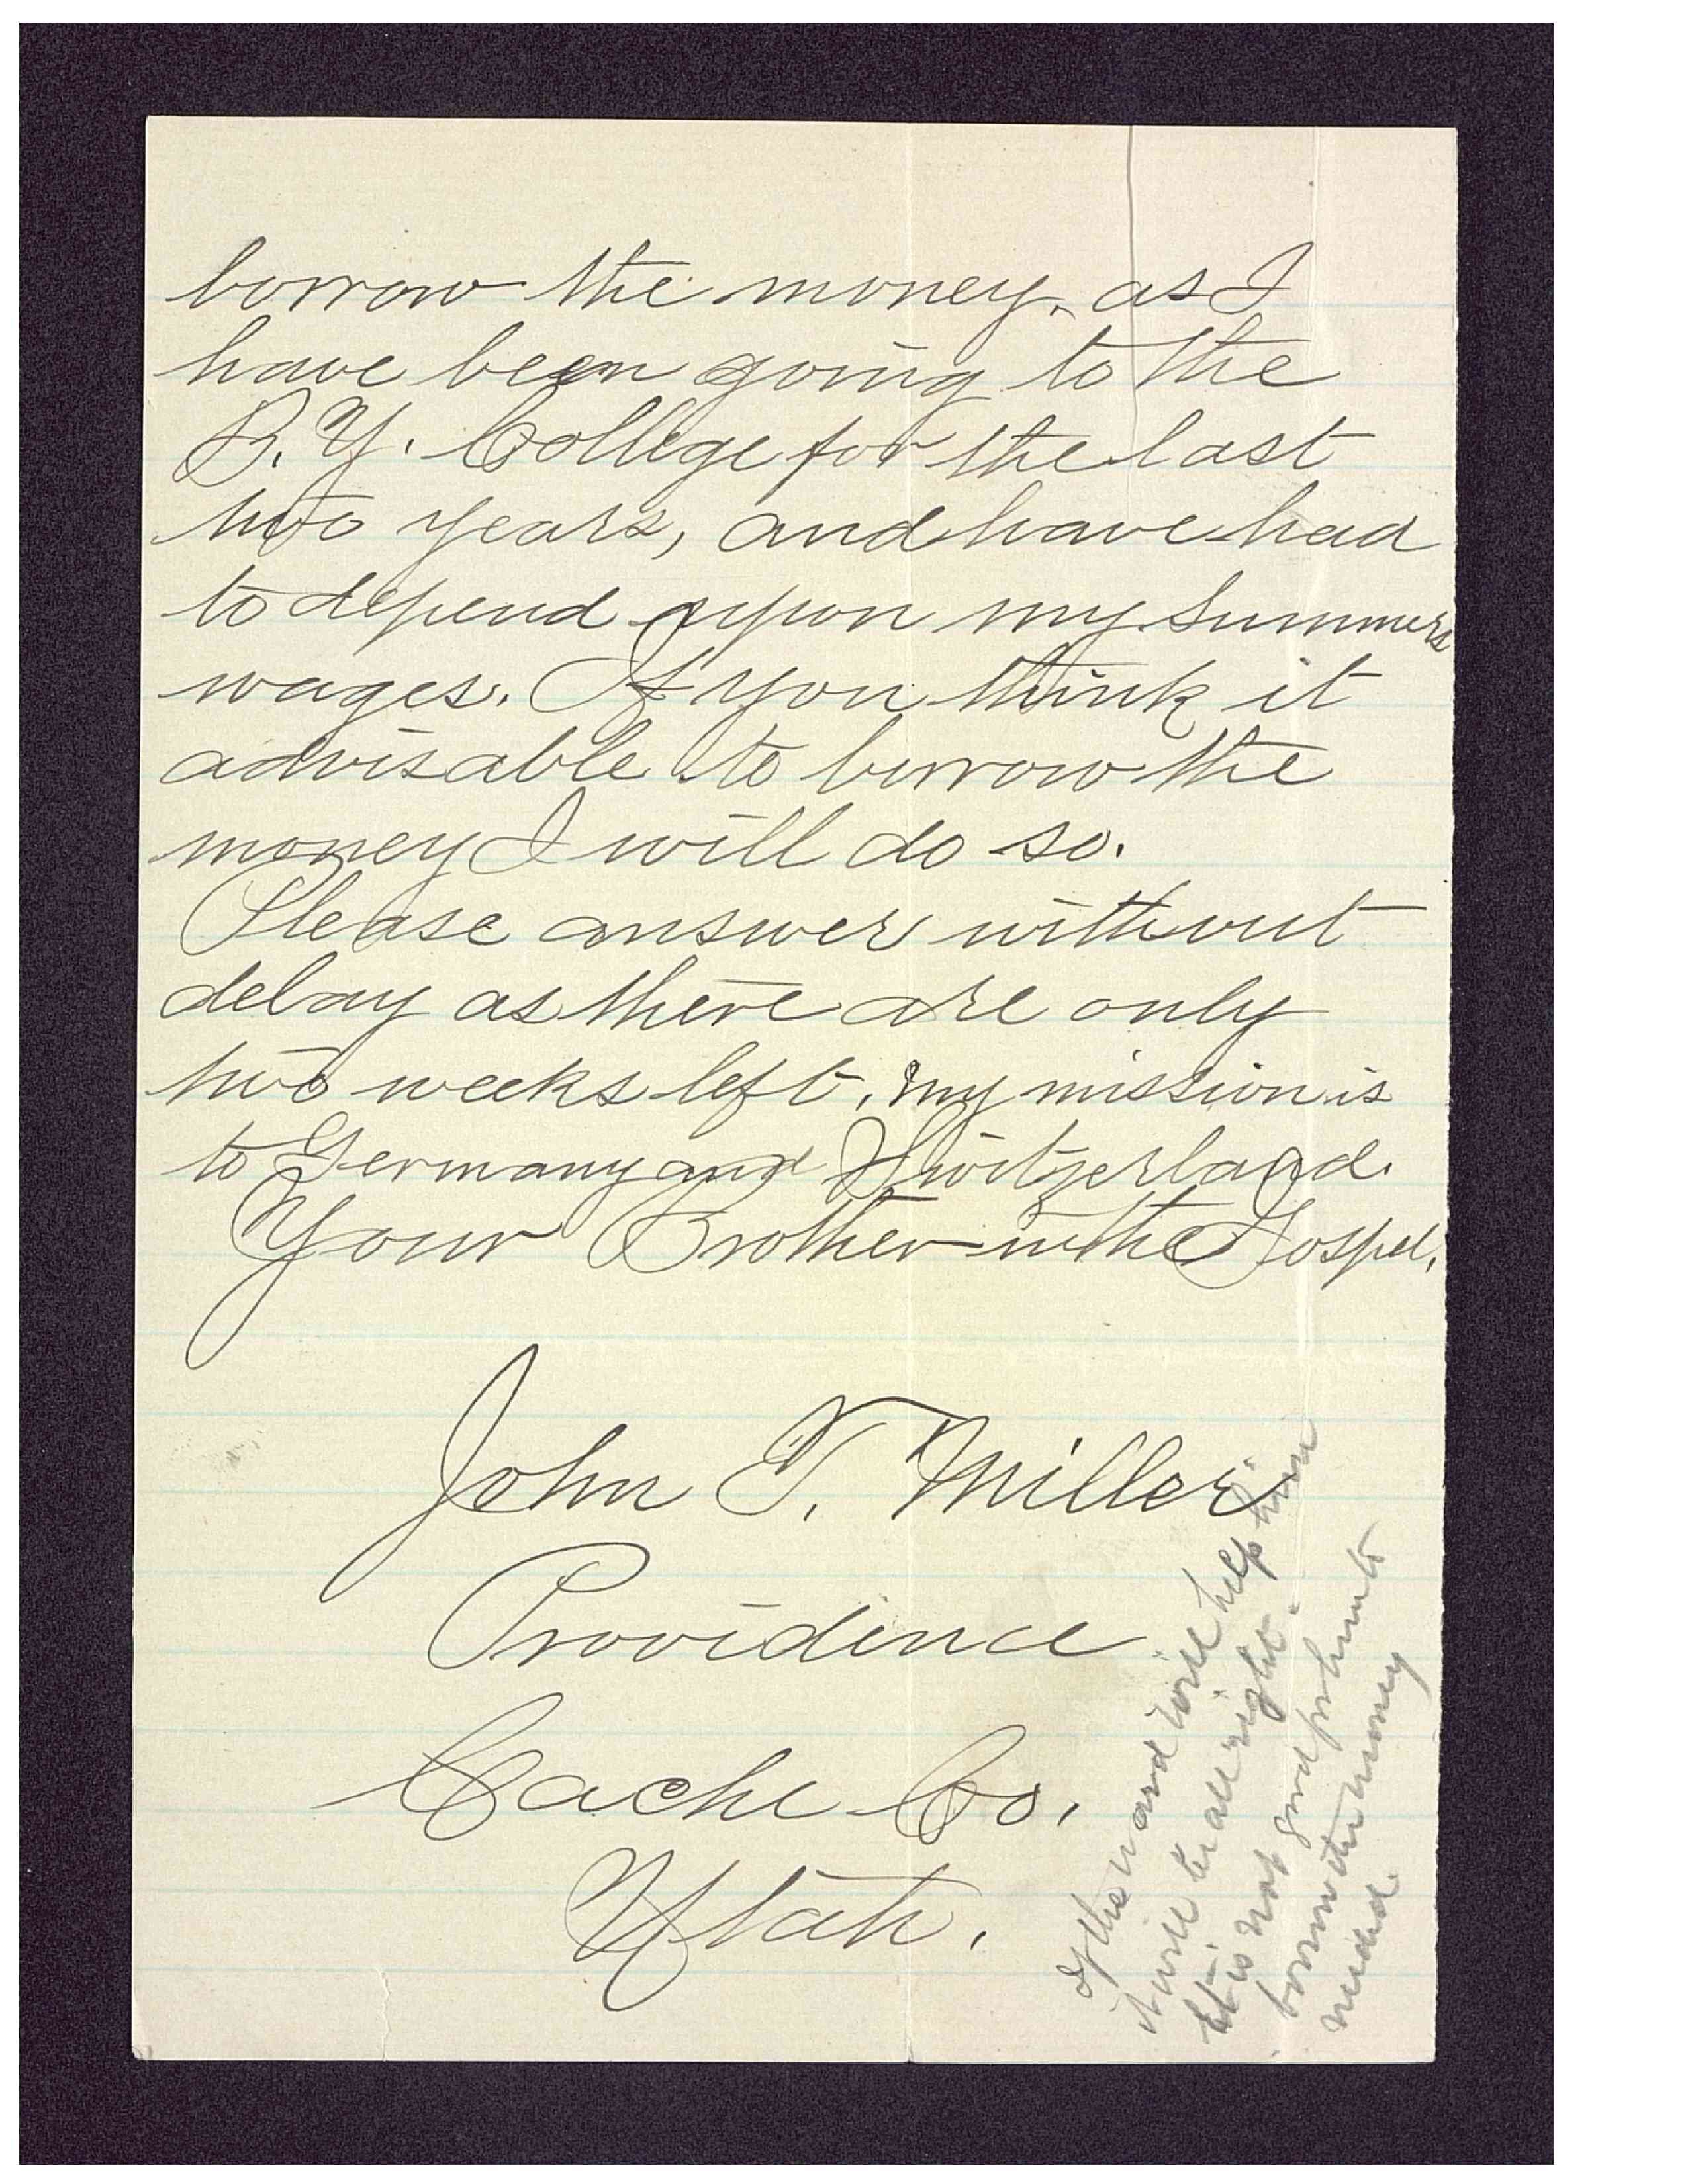 borrow the money, as I
have been going to the
B. Y. College for the last
two years, and have had
to depend upon my summers
wages. If you think it
advisable to borrow the
money I will do so.
Please answer without
delay as there are only
two weeks left. My mission is
to Germany and Switzerland.
Your Brother in the Gospel,
John T. Miller
Providence
Cache Co.
Utah.
If the ward will help him
it will be all right.
It is not good for him to
borrow the money
needed.